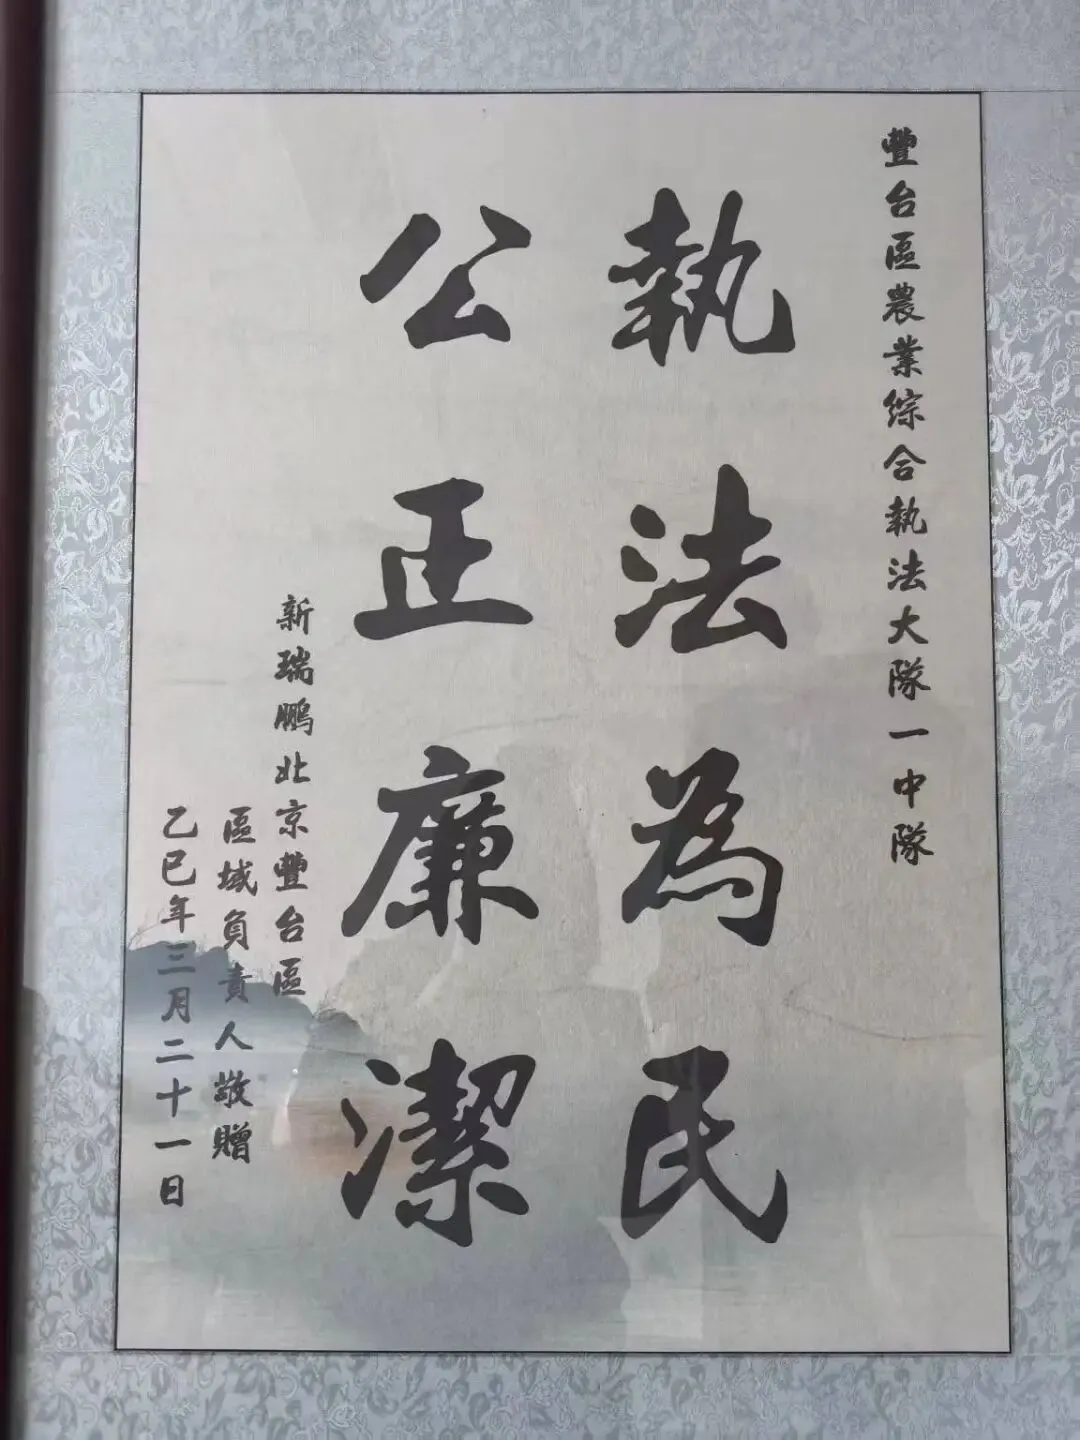 豐台區農業綜合執法大隊一中隊
執法為民
公正廉潔
新瑞鹏北京豐台區
區域負責人敬贈
乙巳年三月二十一日